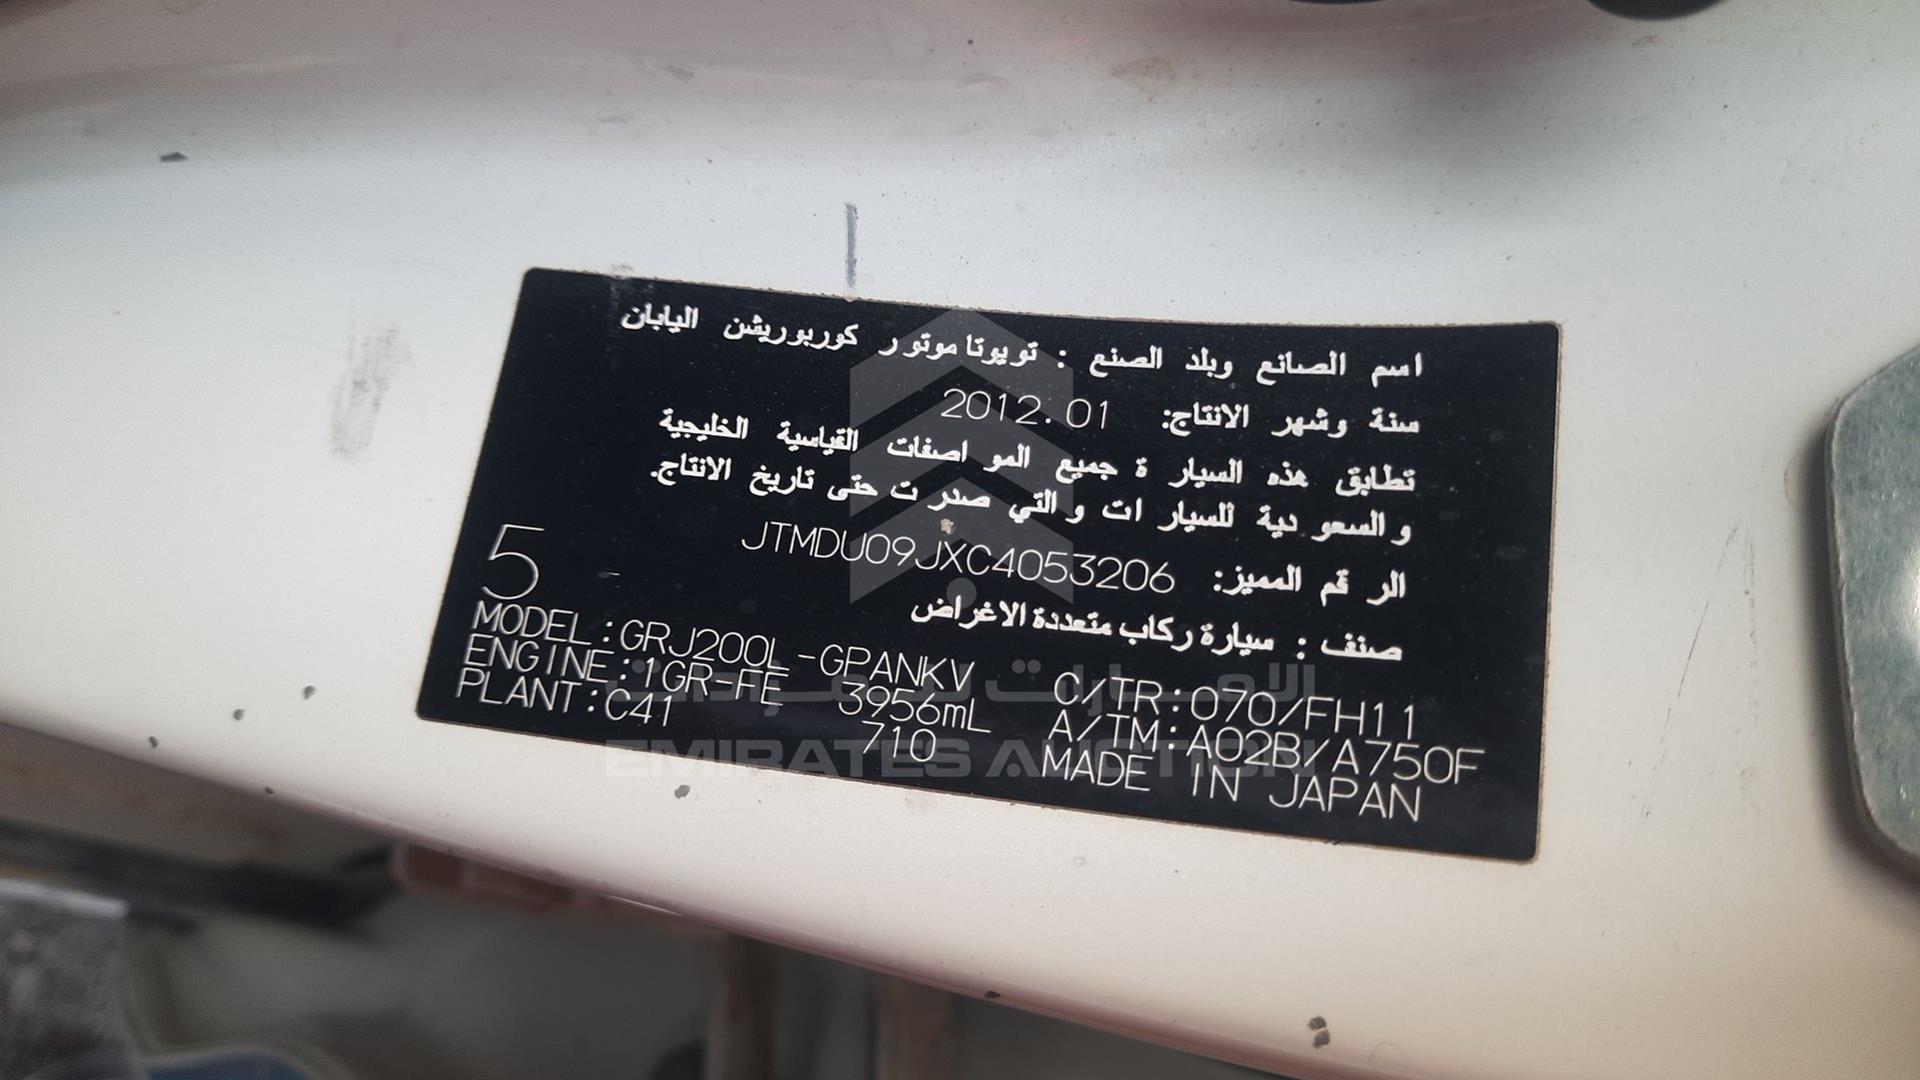 اسم الصانع وبلد الصنع : تويوتا موتور كوربوريشن اليابان
سنة وشهر الانتاج: 2012.01
تطابق هذه السيارة جميع المواصفات القياسية الخليجية
والسعودية للسيارات والتي صدرت حتى تاريخ الانتاج.
الرقم المميز: JTMDU09JXC4053206
صنف : سيارة ركاب متعددة الاغراض
5
MODEL:GRJ200L-GPANKV C/TR:070/FH11
ENGINE:1GR-FE 3956mL A/TM:A02B/A750F
PLANT:C41 710 MADE IN JAPAN
الامارات للمزادات
EMIRATES AUCTION